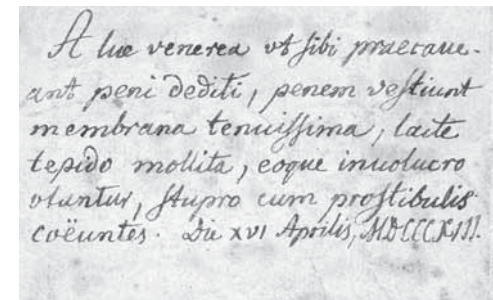 A lue venerea vt sibi praecaue-
ant peni dediti, penem veſtiunt
membrana tenuiſſima, lacte
tepido mollita, eoque inuolucro
vtuntur, ſtupro cum proſtibulis
coëuntes. Die XVI Aprilis, MDCCCXIII.